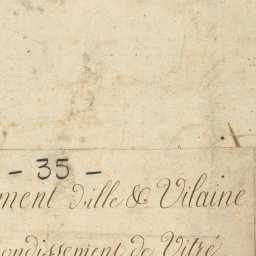 - 35 -
ment d'ille & Vilaine
ondissement de Vitré